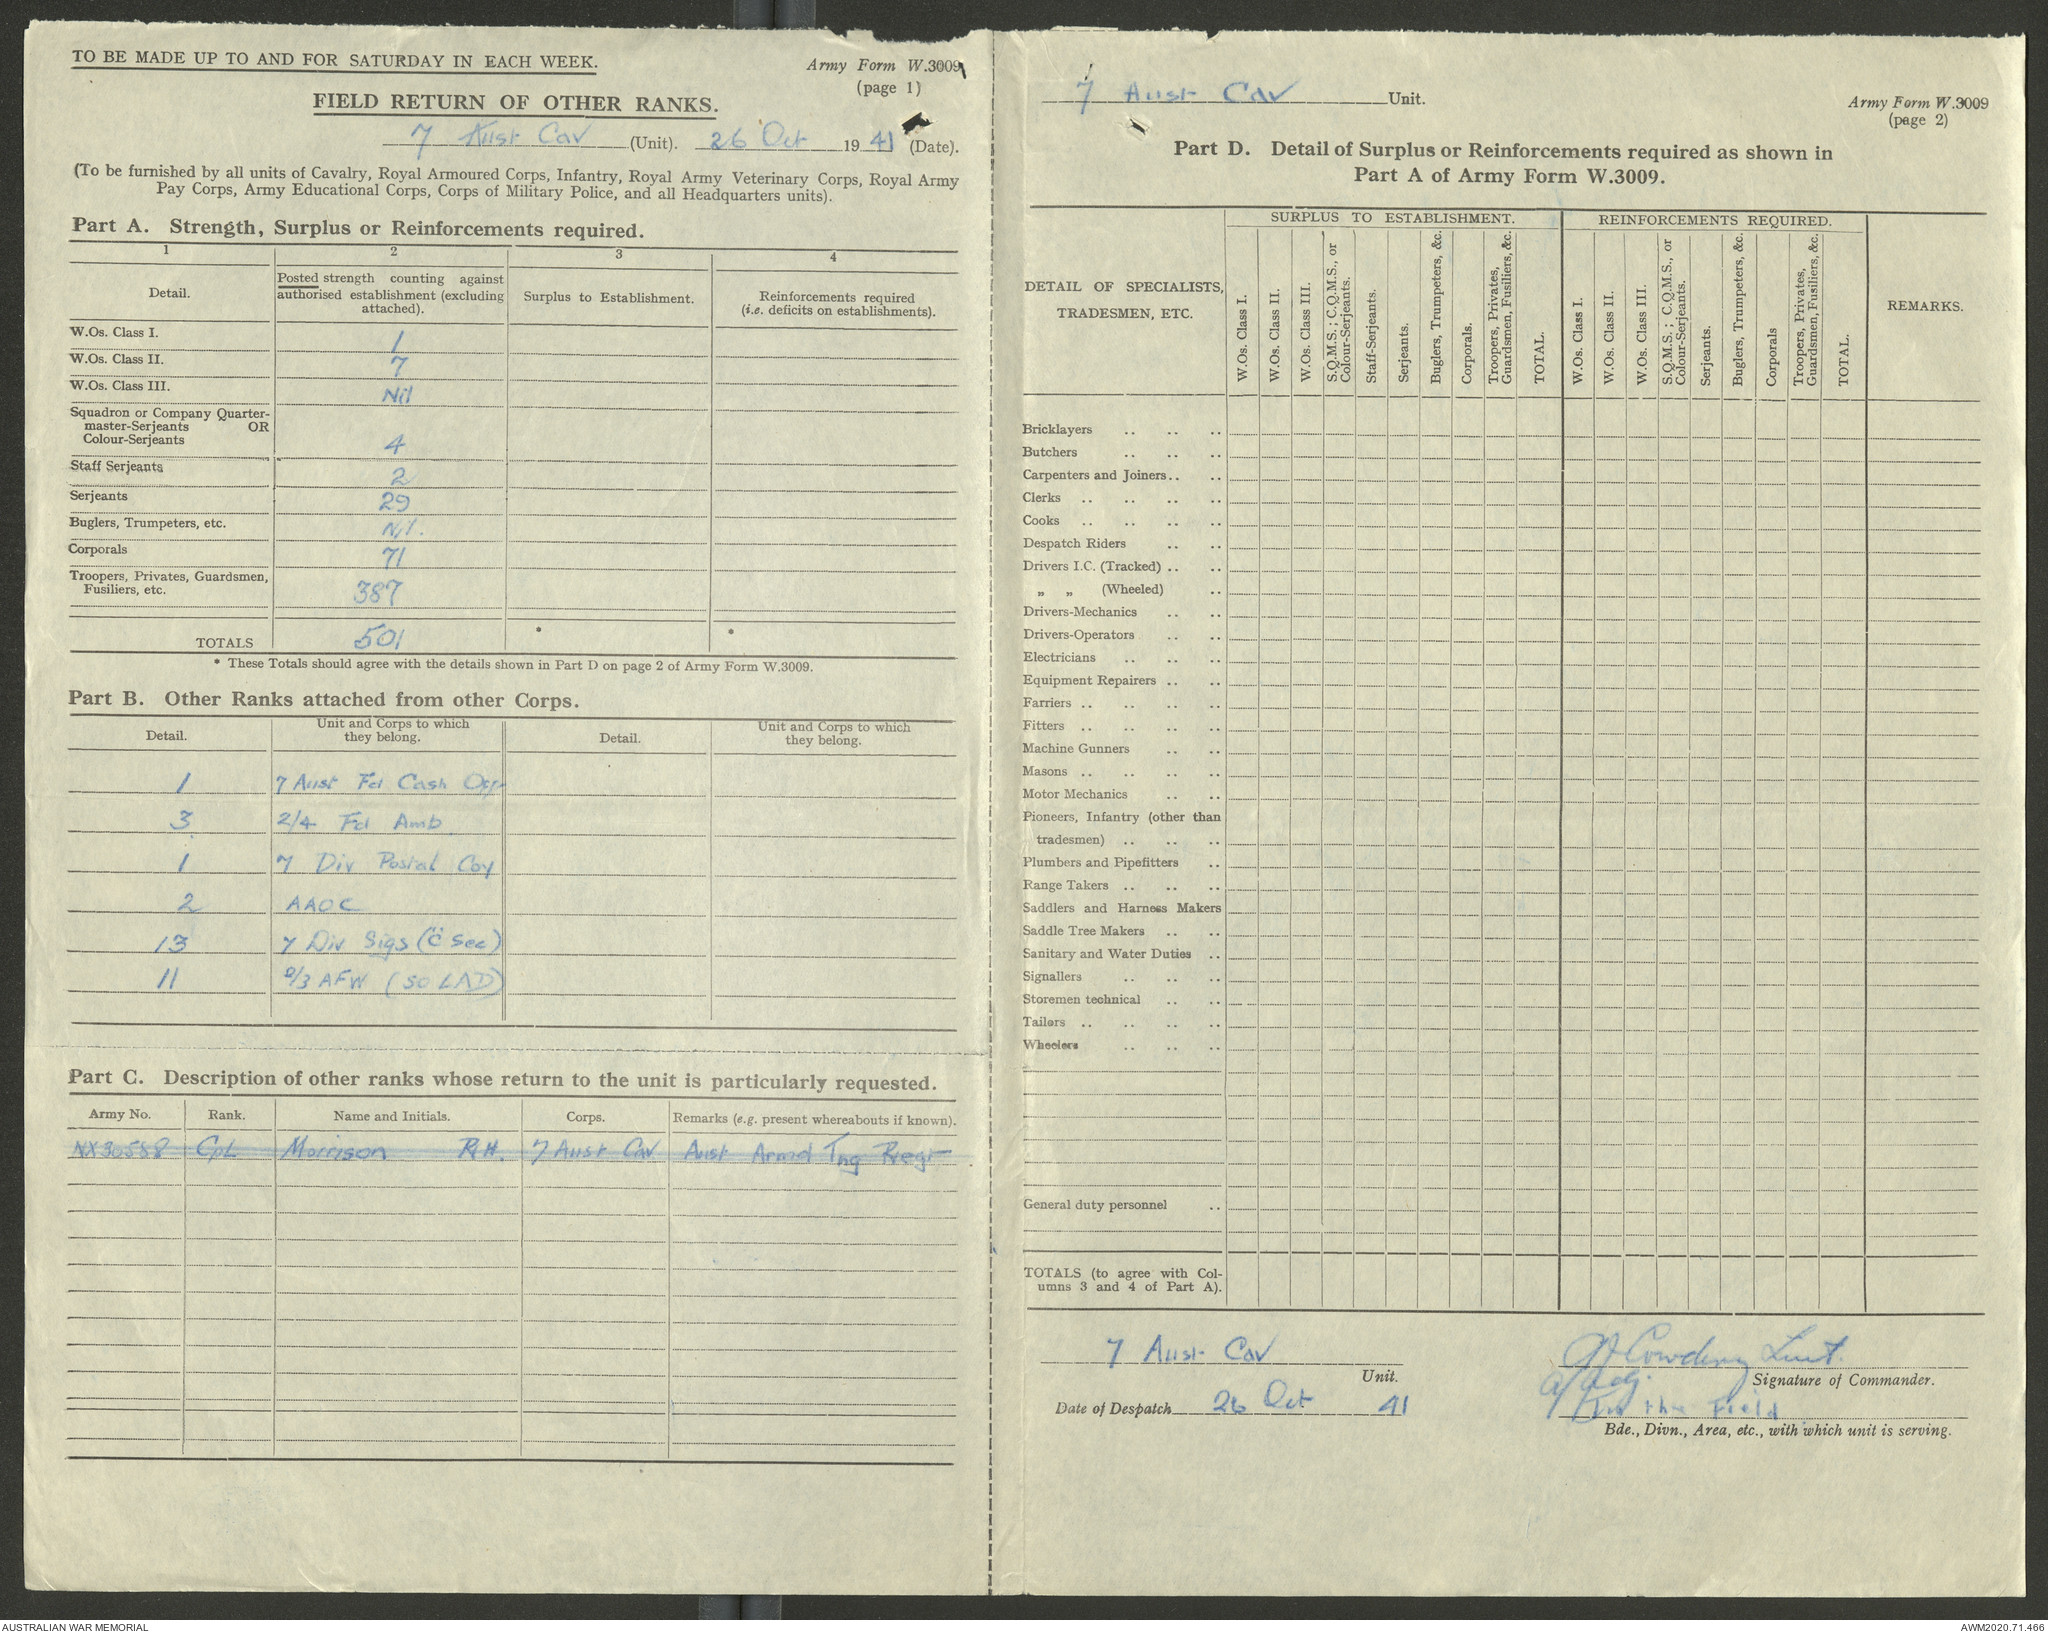 TO BE MADE UP TO AND FOR SATURDAY IN EACH WEEK.
Army Form W.3009
(page 1)
FIELD RETURN OF OTHER RANKS.
7 Aust Cav (Unit). 26 Oct 1941 (Date).
(To be furnished by all units of Cavalry, Royal Armoured Corps, Infantry, Royal Army Veterinary Corps, Royal Army
Pay Corps, Army Educational Corps, Corps of Military Police, and all Headquarters units).
Part A. Strength, Surplus or Reinforcements required.
1 2 3 4
Detail.
Posted strength counting against
authorised establishment (excluding
attached).
Surplus to Establishment.
Reinforcements required
(i.e. deficits on establishments).
W.Os. Class I. 1
W.Os. Class II. 7
W.Os. Class III. Nil
Squadron or Company Quarter-
master-Serjeants OR
Colour-Serjeants 4
Staff Serjeants 2
Serjeants 29
Buglers, Trumpeters, etc. Nil.
Corporals 71
Troopers, Privates, Guardsmen,
Fusiliers, etc. 387
TOTALS 501 * *
* These Totals should agree with the details shown in Part D on page 2 of Army Form W.3009.
Part B. Other Ranks attached from other Corps.
Detail.
Unit and Corps to which
they belong.
Detail.
Unit and Corps to which
they belong.
1 7 Aust Fd Cash Off
3 2/4 Fd Amb
1 7 Div Postal Coy
2 AAOC
13 7 Div Sigs ("C" Sec)
11 2/3 AFW (50 LAD)
Part C. Description of other ranks whose return to the unit is particularly requested.
Army No. Rank. Name and Initials. Corps. Remarks (e.g. present whereabouts if known).
NX30588 Cpl Morrison R.H. 7 Aust Cav Aust Armd Tng Regt
7 Aust Cav Unit.
Army Form W.3009
(page 2)
Part D. Detail of Surplus or Reinforcements required as shown in
Part A of Army Form W.3009.
DETAIL OF SPECIALISTS,
TRADESMEN, ETC.
SURPLUS TO ESTABLISHMENT.
W.Os. Class I.
W.Os. Class II.
W.Os. Class III.
S.Q.M.S.; C.Q.M.S., or
Colour-Serjeants.
Staff-Serjeants.
Serjeants.
Buglers, Trumpeters, &c.
Corporals.
Troopers, Privates,
Guardsmen, Fusiliers, &c.
TOTAL.
REINFORCEMENTS REQUIRED.
W.Os. Class I.
W.Os. Class II.
W.Os. Class III.
S.Q.M.S.; C.Q.M.S., or
Colour-Serjeants.
Serjeants.
Buglers, Trumpeters, &c.
Corporals
Troopers, Privates,
Guardsmen, Fusiliers, &c.
TOTAL.
REMARKS.
Bricklayers .. .. ..
Butchers .. .. ..
Carpenters and Joiners .. ..
Clerks .. .. .. ..
Cooks .. .. .. ..
Despatch Riders .. ..
Drivers I.C. (Tracked) .. ..
„ „ (Wheeled) ..
Drivers-Mechanics .. ..
Drivers-Operators .. ..
Electricians .. .. ..
Equipment Repairers .. ..
Farriers .. .. .. ..
Fitters .. .. .. ..
Machine Gunners .. ..
Masons .. .. .. ..
Motor Mechanics .. ..
Pioneers, Infantry (other than
tradesmen) .. .. ..
Plumbers and Pipefitters ..
Range Takers .. .. ..
Saddlers and Harness Makers
Saddle Tree Makers .. ..
Sanitary and Water Duties ..
Signallers .. .. ..
Storemen technical .. ..
Tailors .. .. .. ..
Wheelers .. .. ..
General duty personnel ..
TOTALS (to agree with Col-
umns 3 and 4 of Part A).
7 Aust Cav
Unit.
Date of Despatch 26 Oct 41
Cowdery Lieut.
a/Adj.
Signature of Commander.
In the Field
Bde., Divn., Area, etc., with which unit is serving.
AUSTRALIAN WAR MEMORIAL
AWM2020.71.466